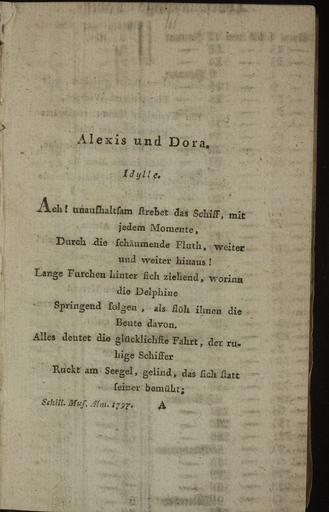 Alexis und Dora.
Idylle.
Ach! unaufhaltſam ſtrebet das Schiff, mit
jedem Momente,
Durch die ſchäumende Fluth, weiter
und weiter hinaus!
Lange Furchen hinter ſich ziehend, worinn
die Delphine
Springend folgen, als flöh ihnen die
Beute davon.
Alles deutet die glücklichſte Fahrt, der ru-
hige Schiffer
Ruckt am Seegel, gelind, das ſich ſtatt
ſeiner bemüht;
Schill. Muſ. Alm. 1797. A